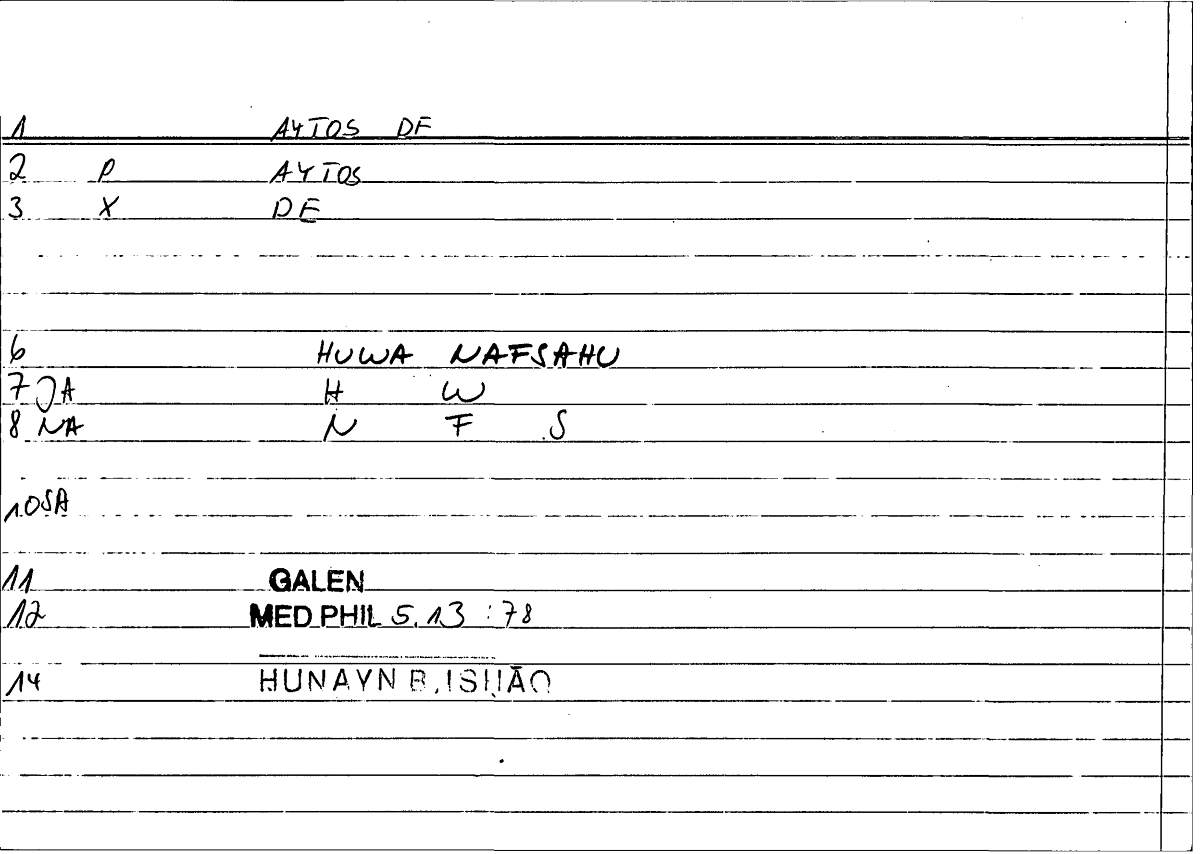 1 AYTOS DE
2 P AYTOS
3 X DE
6 HUWA NAFSAHU
7 JA H W
8 NA N F S
10 SA
11 GALEN
12 MED PHIL 5.13 :78
14 HUNAYN B. ISḤĀQ